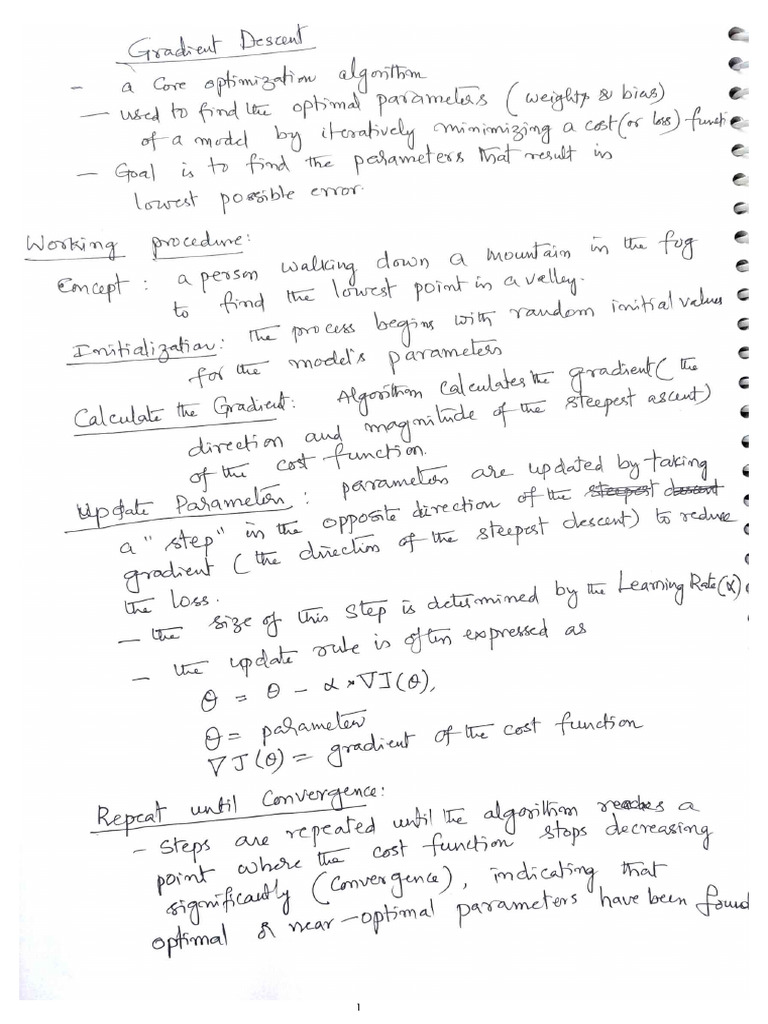 Gradient Descent
- a core optimization algorithm
- used to find the optimal parameters (weights & bias)
of a model by iteratively minimizing a cost (or loss) functi
- Goal is to find the parameters that result in
lowest possible error.
Working procedure:
Concept : a person walking down a mountain in the fog
to find the lowest point in a valley.
Initialization: the process begins with random initial values
for the model's parameters
Calculate the Gradient: Algorithm calculates the gradient (the
direction and magnitude of the steepest ascent)
of the cost function.
Update Parameters : parameters are updated by taking
a "step" in the opposite direction of the steepest descent
gradient (the direction of the steepest descent) to reduce
the loss.
- the size of this step is determined by the Learning Rate (α)
- the update rule is often expressed as
θ = θ - α * ∇J(θ),
θ = parameters
∇J(θ) = gradient of the cost function
Repeat until Convergence:
- Steps are repeated until the algorithm reaches a
point where the cost function stops decreasing
significantly (Convergence), indicating that
optimal & near-optimal parameters have been found
1